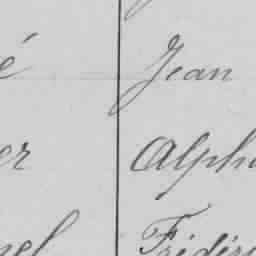 é Jean
er Alph
el Frédér